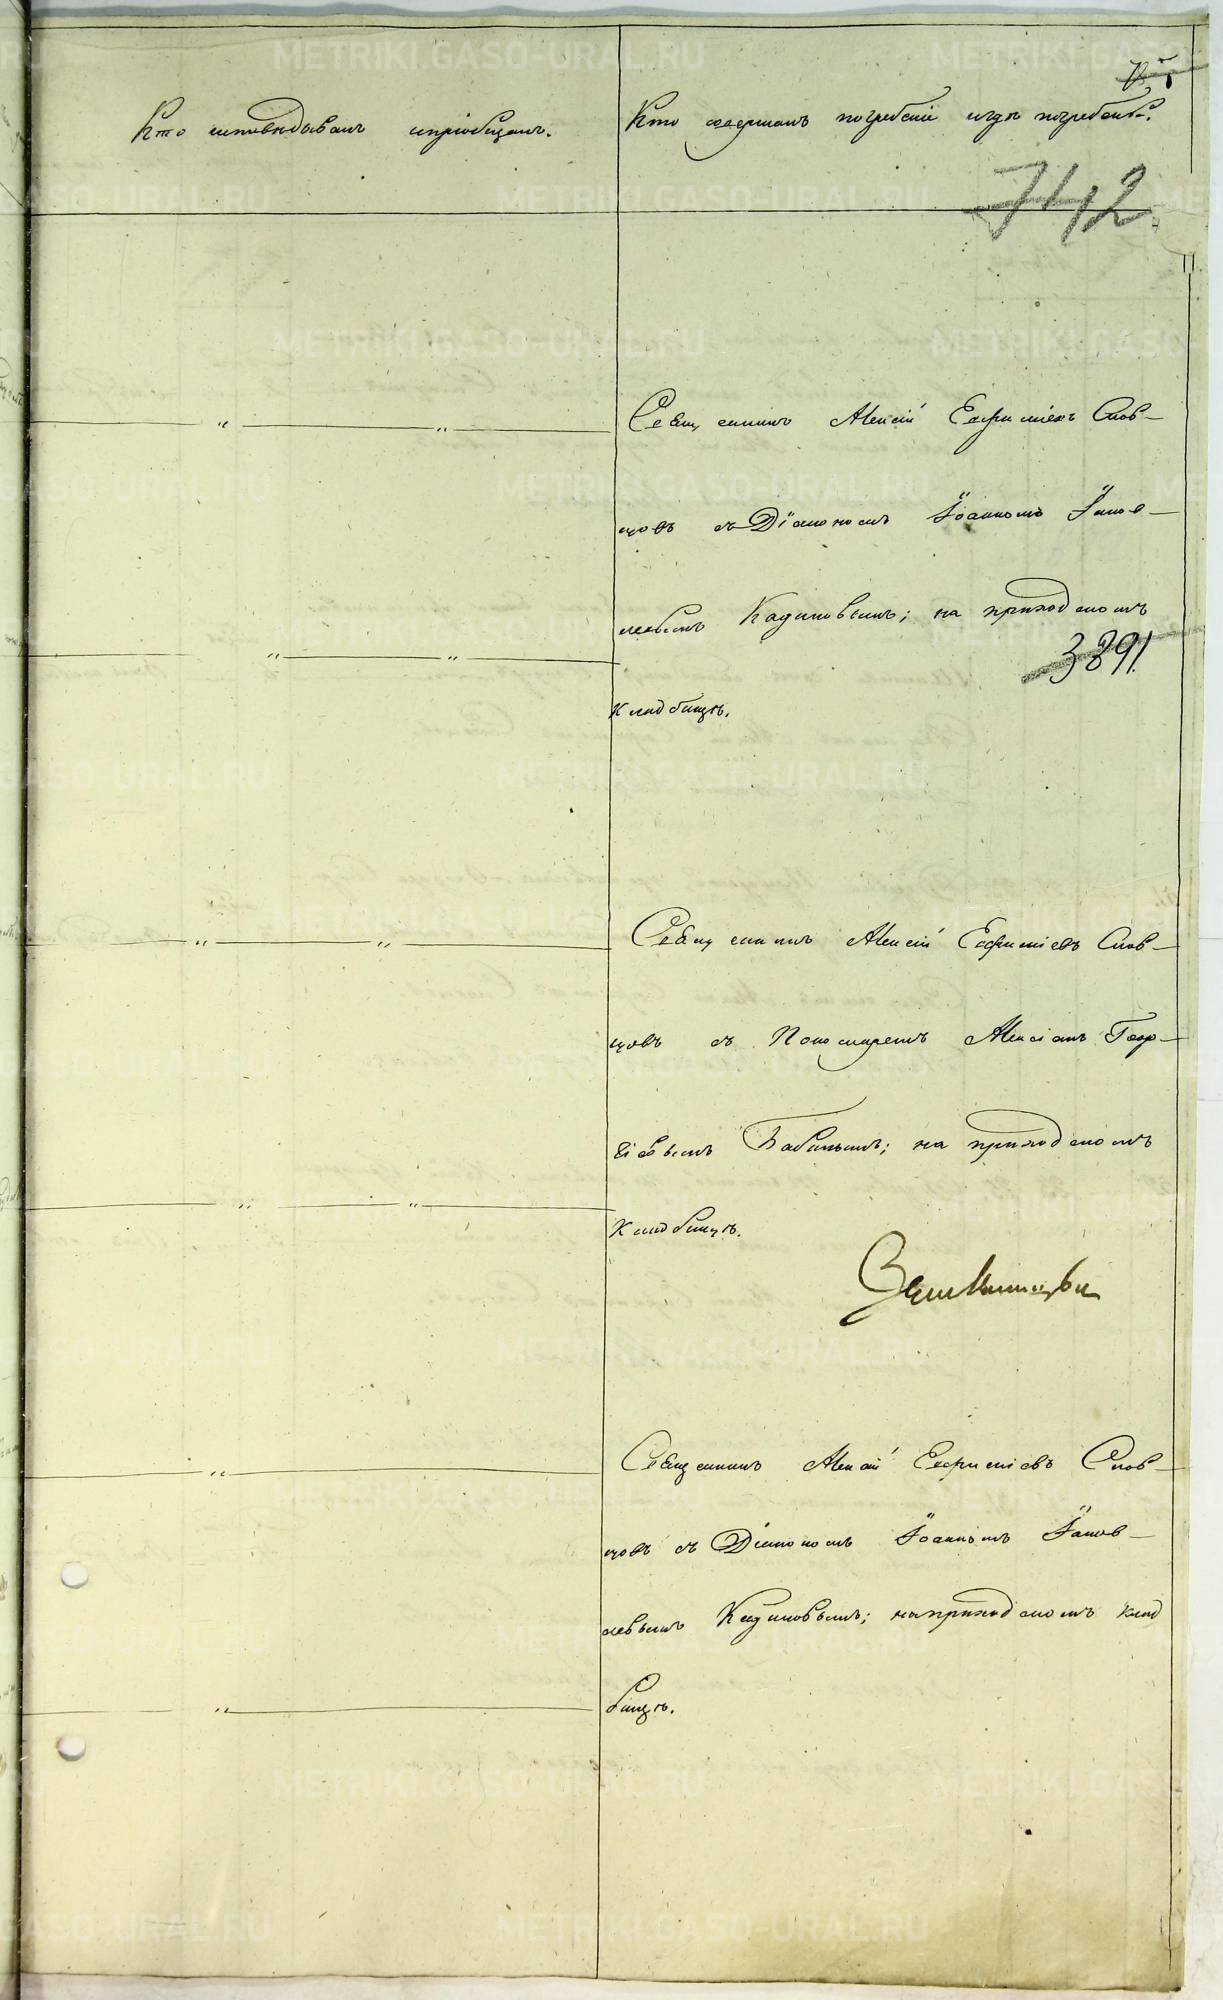 Кто исповѣдывалъ и пріобщалъ.
Кто совершалъ погребеніе и гдѣ погребены.
742
Священникъ Алексій Евфиміевъ Слов-
цовъ съ Діакономъ Іоанномъ Іаков-
левымъ Кадиковымъ; на приходскомъ
3891
кладбищѣ.
Священникъ Алексій Евфиміевъ Слов-
цовъ съ Пономаремъ Алексіемъ Геор-
гіевымъ Бабинымъ; на приходскомъ
кладбищѣ.
Священникъ Алексій Евфиміевъ Слов-
цовъ съ Діакономъ Іоанномъ Іаков-
левымъ Кадиковымъ; на приходскомъ клад
бищѣ.